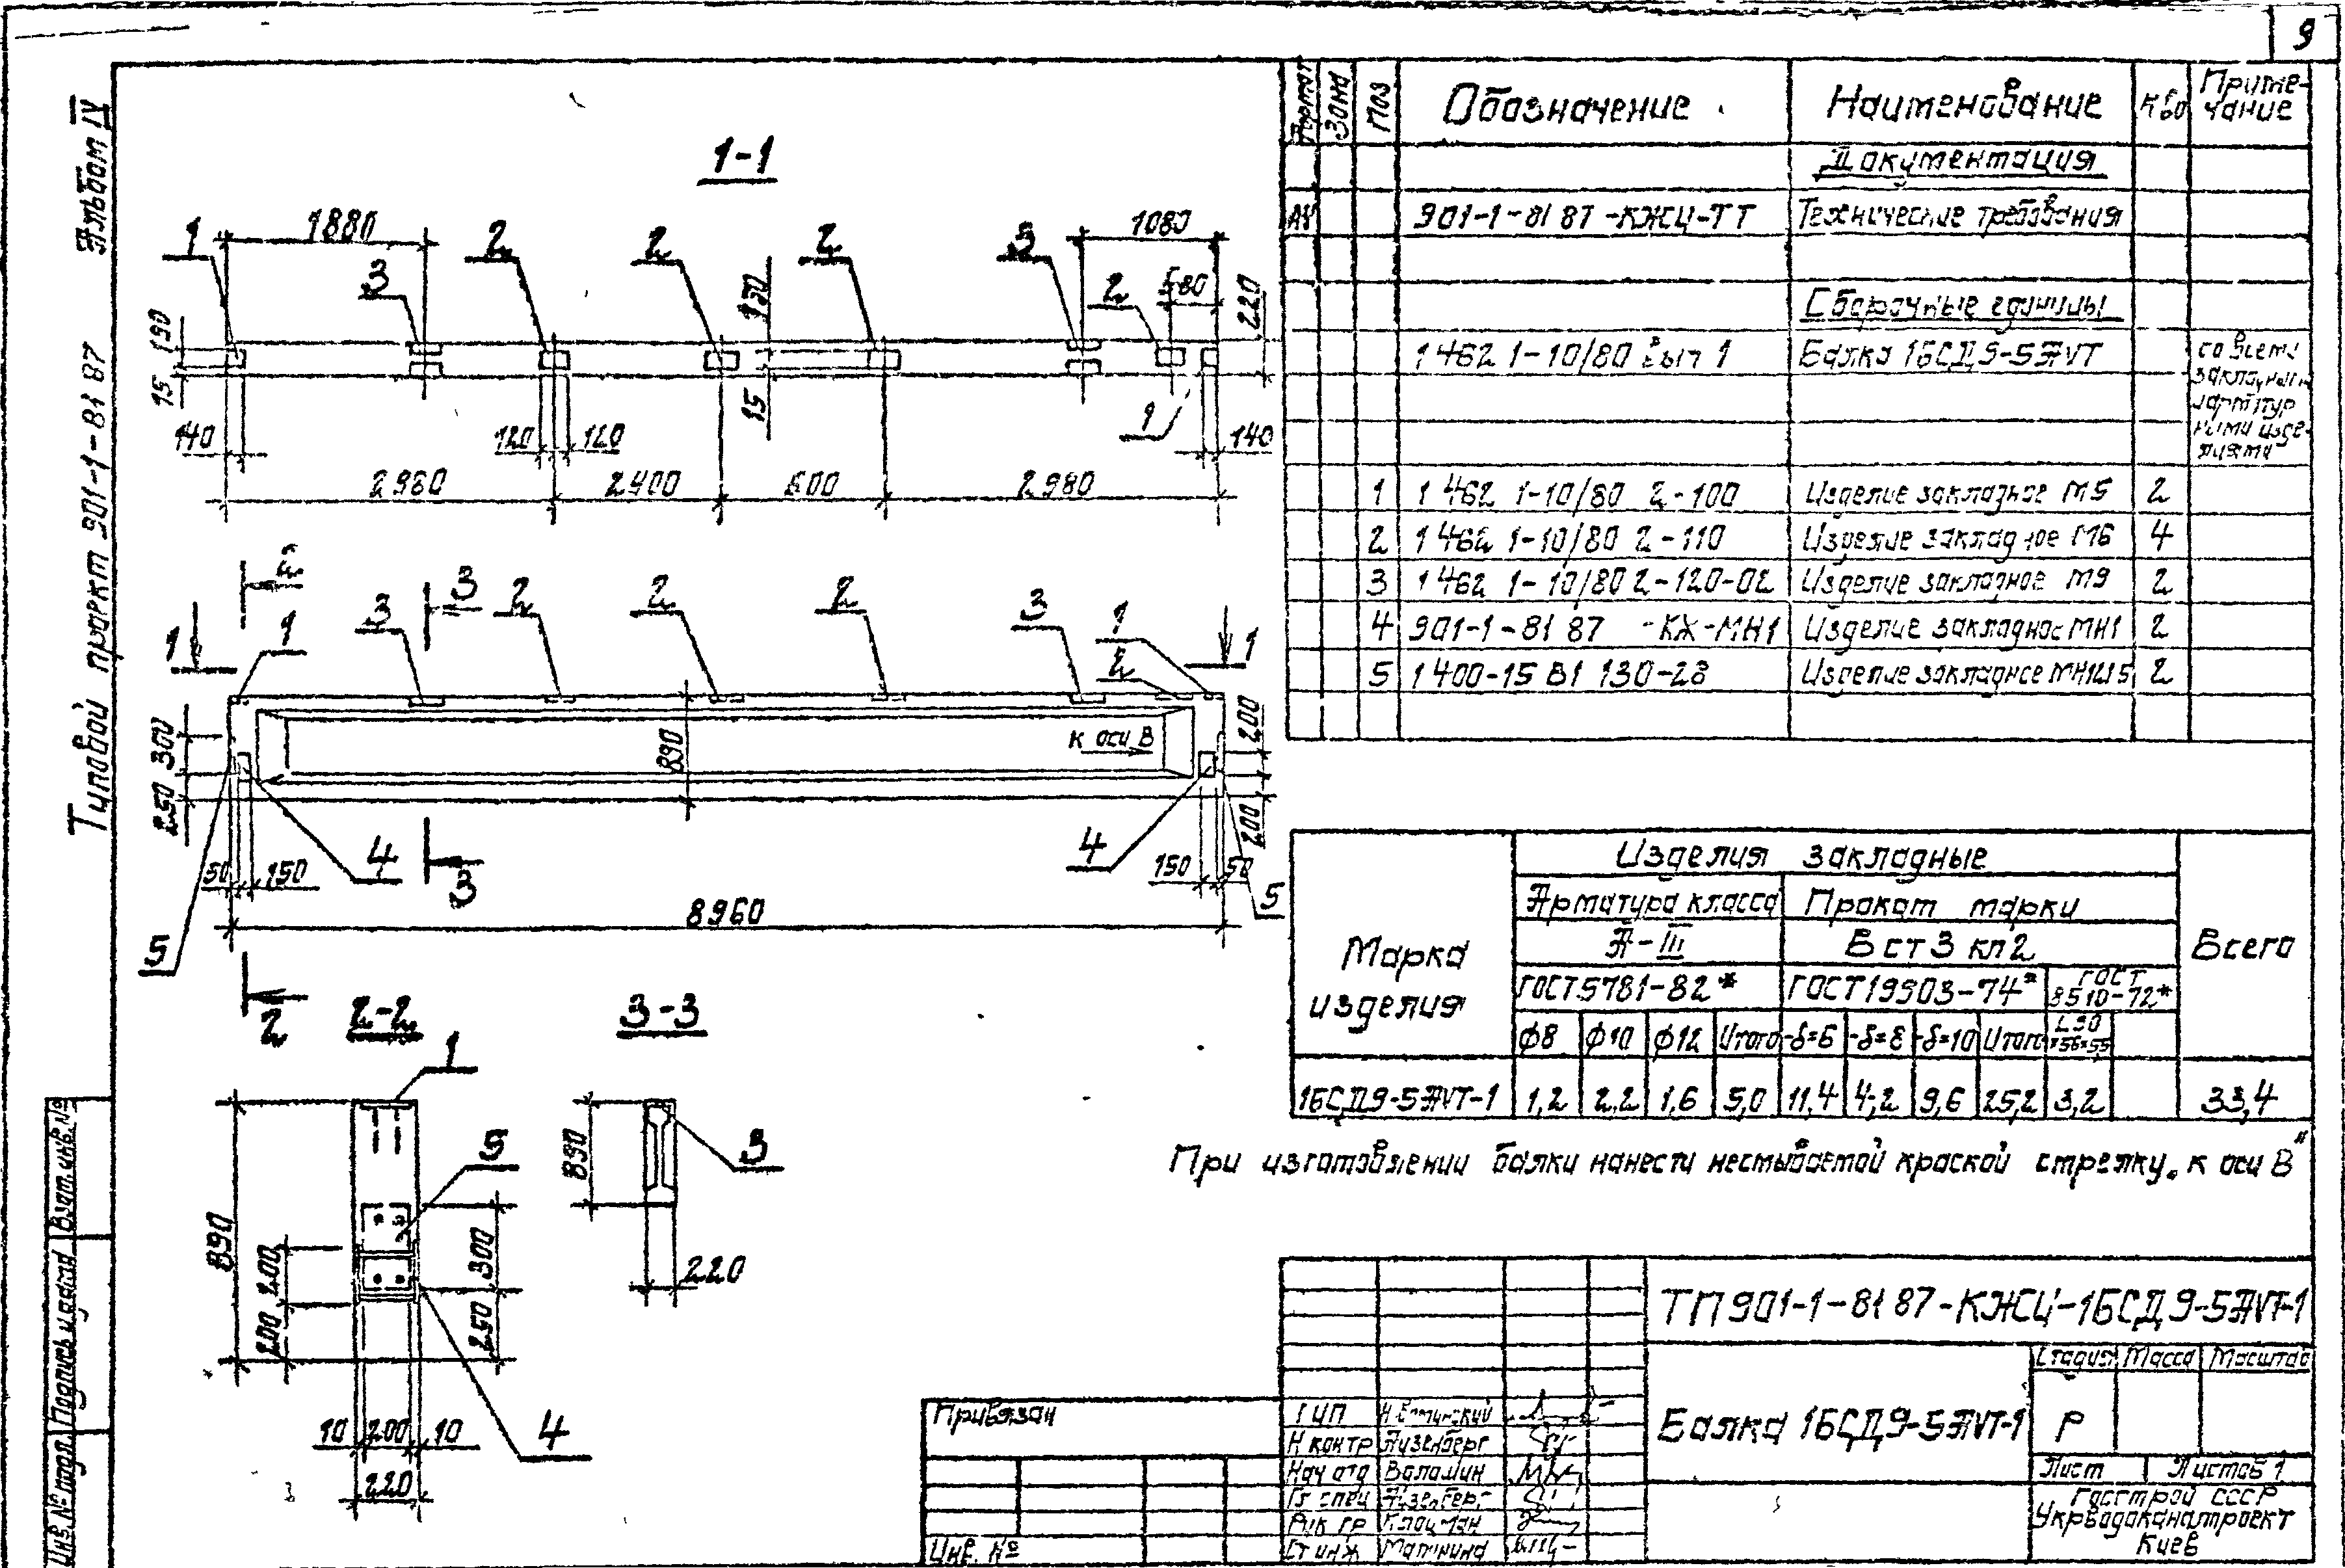 9
Альбом IV
Типовой проект 901-1-81 87
1-1
1880
1080
1
3
2
2
2
3
2
580
220
190
15
130
15
1
140
120
120
140
2980
2400
600
2980
2
3
1
1
3
2
2
2
3
1
2
1
300
250
890
к оси В
200
200
50
150
4
3
4
150
50
5
8960
5
2
2-2
3-3
1
5
3
890
890
200
200
300
250
220
10
200
10
4
220
Формат
Зона
Поз
Обозначение
Наименование
К во
Приме-
чание
Документация
А4
901-1-81 87-КЖИ-ТТ
Технические требования
Сборочные единицы
1 462 1-10/80 вып 1
Балка 1БСД9-5АVТ
со всеми
закладными
1 1 462 1-10/80 2-100 Изделие закладное М5 2
2 1 462 1-10/80 2-110 Изделие закладное М6 4
3 1 462 1-10/80 2-120-02 Изделие закладное М9 2
4 901-1-81 87 -КЖ-МН1 Изделие закладное МН1 2
5 1 400-15 В1 130-28 Изделие закладное 2
Марка
изделия
Изделия закладные
Всего
Арматура класса
А-III
Прокат марки
В ст 3 кп2
ГОСТ 5781-82*
ГОСТ 19903-74*
ГОСТ
8510-72*
ф8 ф10 ф12 Итого -δ=6 -δ=8 -δ=10 Итого
1БСД9-5АVТ-1 1,2 2,2 1,6 5,0 11,4 4,2 9,6 25,2 3,2 33,4
При изготовлении балки нанести несмываемой краской стрелку „к оси В"
ТП 901-1-81 87-КЖИ-1БСД9-5АVТ-1
Балка 1БСД9-5АVТ-1
Стадия Масса Масштаб
Р
Лист Листов 1
Госстрой СССР
Укрводоканалпроект
Киев
Привязан
Инв. №
ГИП
Н контр Айзенберг
Нач отд
Гл спец Айзенберг
Рук гр
Ст инж
Взам. инв. №
Подпись и дата
Инв. № подл.